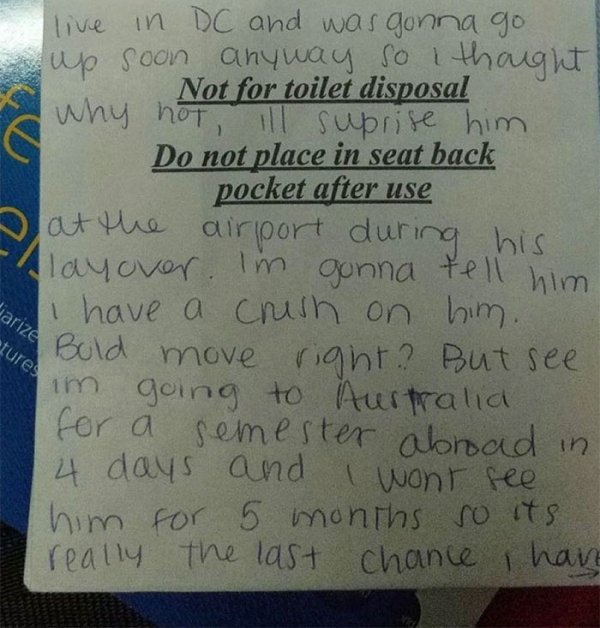 live in DC and was gonna go
up soon anyway so i thought
Not for toilet disposal
why not, ill suprise him
Do not place in seat back
pocket after use
at the airport during his
layover. Im gonna tell him
i have a crush on him.
Bold move right? But see
im going to Australia
for a semester abroad in
4 days and i wont see
him for 5 months so its
really the last chance i have